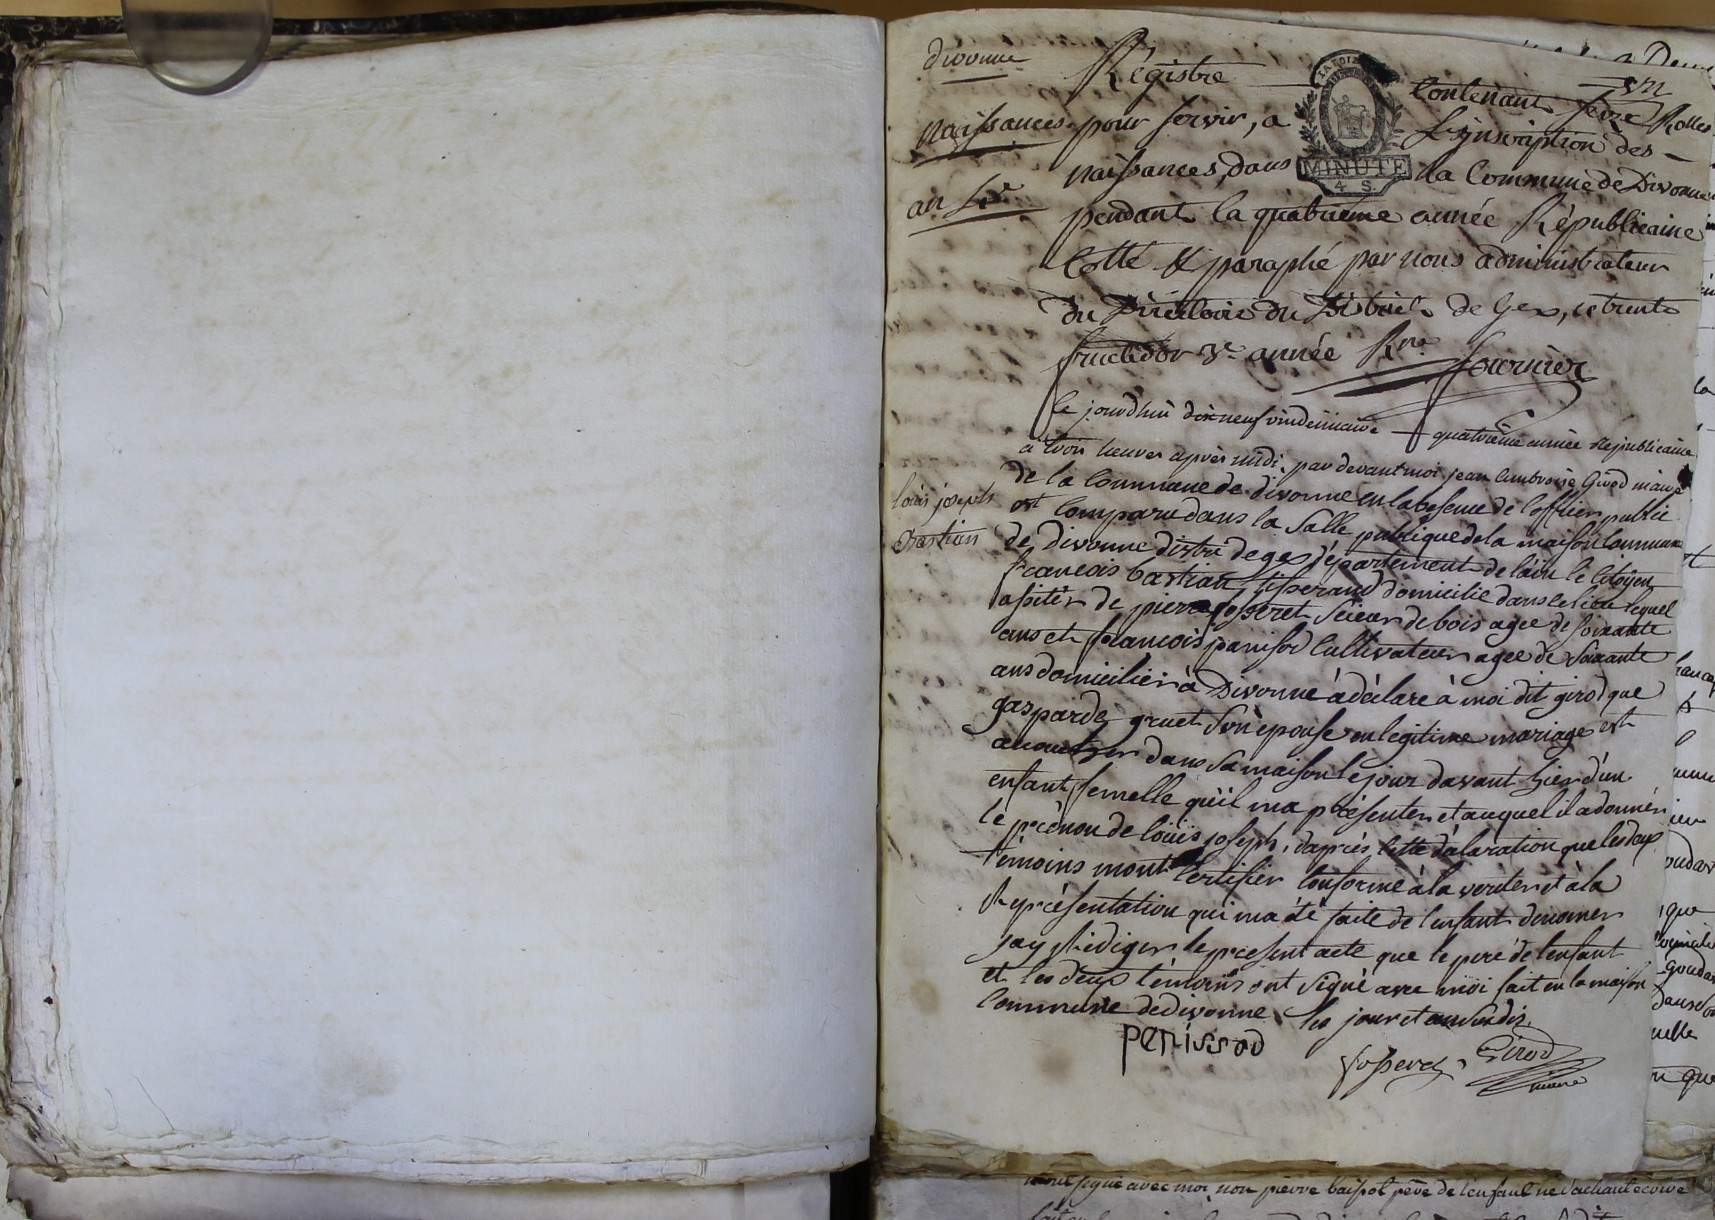 divonne
naissances
an 4e
Régistre
contenant seize Rolles
pour servir, a L'jnscription des
naissances, dans la Commune de Divonne
LA LOI
MINUTE
4 S.
pendant la quatrieme année Républicaine
Cotté & paraphé par nous administrateur
du Directoire du District de Gex, ce trente
fructidor 3e année Rne Fournier
Le jourdhui dixneuf vindémiaire quatrième année Republicaine
à trois heures après midi, par devant moi jean ambroise Girod maire
de la Commune de divonne en labsence de lofficier public
est comparu dans la Salle publique de la maison Commune
de Divonne distri de gex département de l'ain le Citoÿen
louis joseph
Bastian
françois bastian, tisserand domicilié dans ce lieu lequel
assiter de pierre josseret Scieur de bois agee de soixante
ans et francois panisod Cultivateur agee de Soixante
ans domicilier à Divonne à déclaré à moi dit girod que
gasparde gruet Son épouse en légitime mariage est
accoucher dans Sa maison le jour davant hier d'un
enfant femelle quil ma présenter et auquel il a donner
le prénon de loüis joseph, daprès Cette déclaration que les deux
témoins mont Certifier Conforme à la veriter et à la
Représentation qui ma été faite de lenfant denomer
jay Rédiger le présent acte que le peré de lenfant
et les deux témoins ont signé avec moi fait en la maison
Commune de divonne les jour et an Susdis
penissod
josseret
Girod
maire
mont signé avec moi non pierre baissot père de lenfant ne sachant écrire